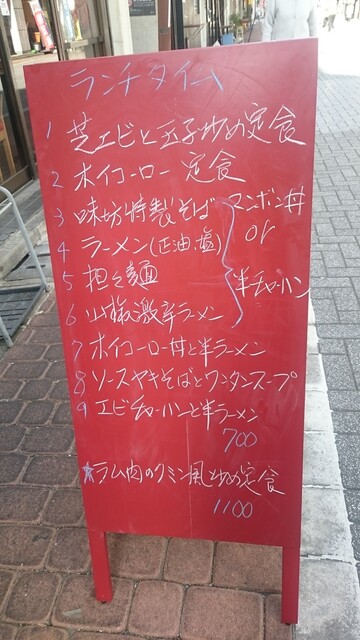 ランチタイム
1 芝エビと玉子炒め定食
2 ホイコーロー 定食
3 味坊特製そば
4 ラーメン(正油、塩)
5 担々麺
6 山椒激辛ラーメン
マンボン丼
or
半チャーハン
7 ホイコーロー丼と半ラーメン
8 ソースヤキそばとワンタンスープ
9 エビチャーハンと半ラーメン
700
★ラム肉のクミン風炒め定食
1100